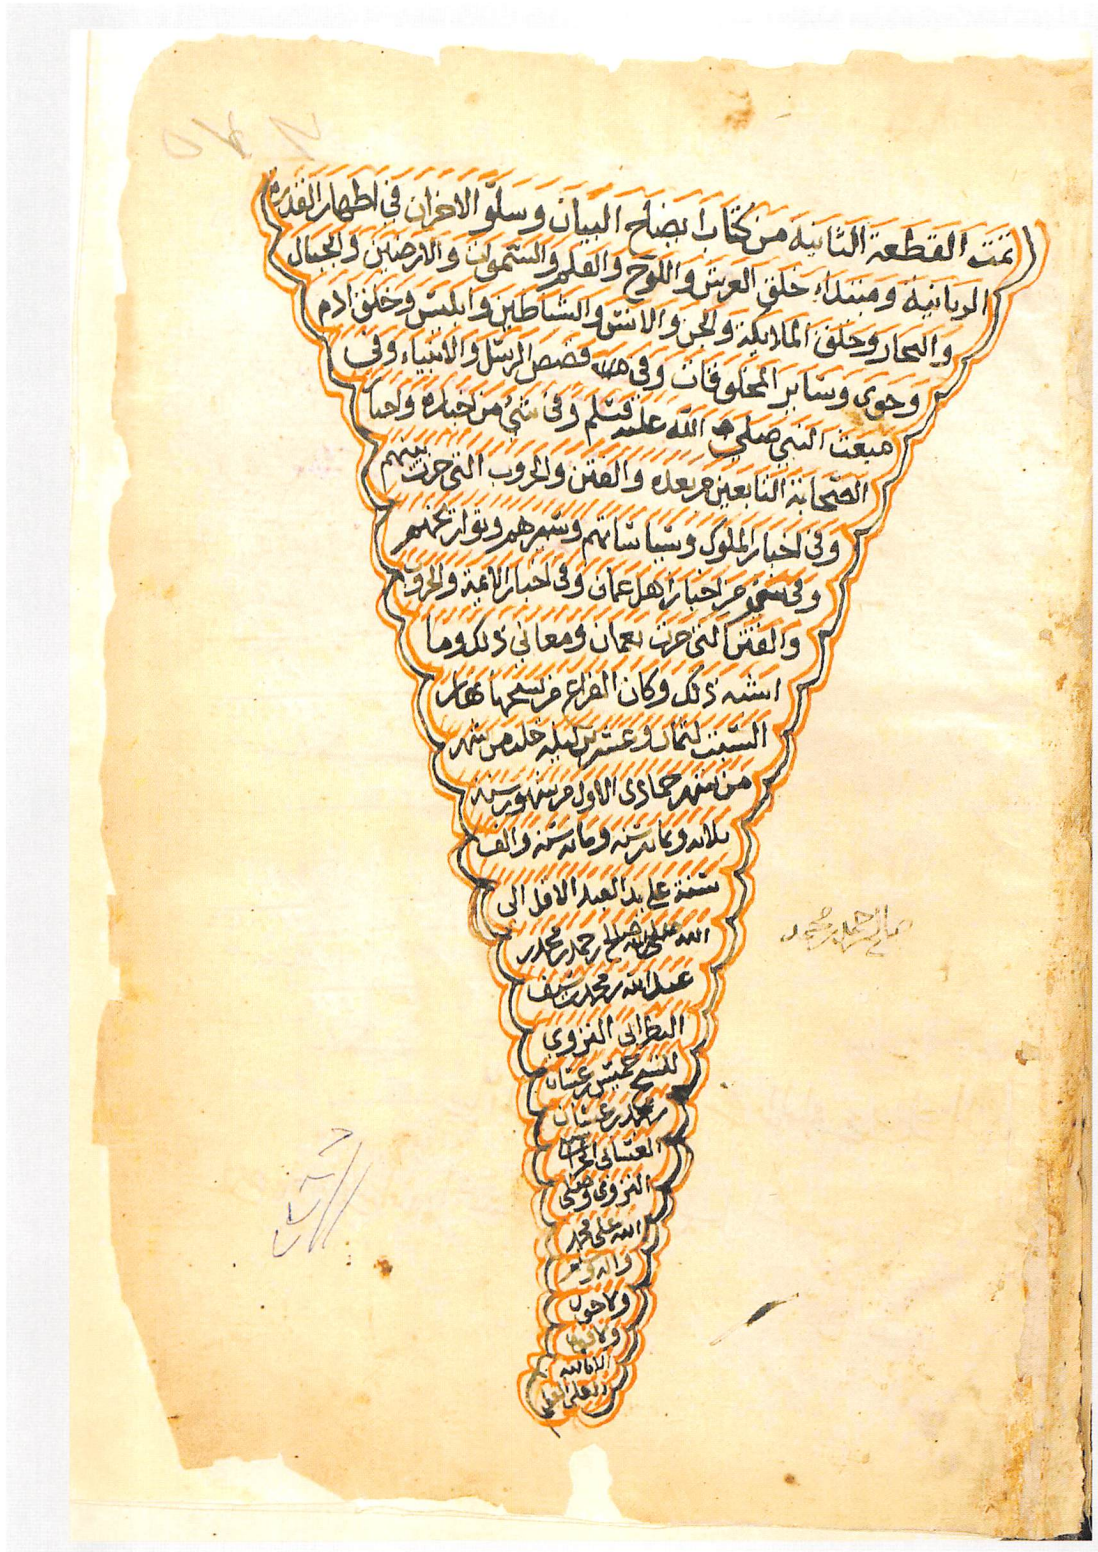 تمت القطعة الثانية من كتاب ايضاح البيان وسلو الاحزان في اظهار القدرة
الربانية ومبتداء خلق العرش واللوح والقلم والسموات والارضين والجبال
والبحار وخلق الملايكة والجن والانس والشياطين وابليس وخلق ادم
وحوى وساير المخلوقات وفي قصص الرسل والانبياء وفي
مبعث النبي صلى الله عليه وسلم وفي شي من اخباره واخبار
الصحابة التابعين من بعده والفتن والحروب التي جرت بينهم
وفي اخبار الملوك وسياساتهم وسيرهم وتواريخهم
وفي شي من اخبار اهل عمان وفي اخبار الائمة والحروب
والفتن التي جرت بعمان ومعاني ذلك وما
اشبه ذلك وكان الفراغ من نسخها نهار
السبت لثمان وعشرين ليلة خلت من شهر
من شهر جمادى الاول من شهور سنة
ثلاثة وثمانين سنة ومائة سنة والف
سنة على يد العبد الاقل الى
الله صالح بن حمد بن محمد بن
عبدالله بن محمد بن
النزوي
للشيخ خميس بن غسان
بن محمد بن غسان
الغساني
النزوي وصلى
الله على محمد
واله وسلم
ولا حول
ولا قوة
الا بالله
العلي العظيم
صالح بن حمد بن محمد